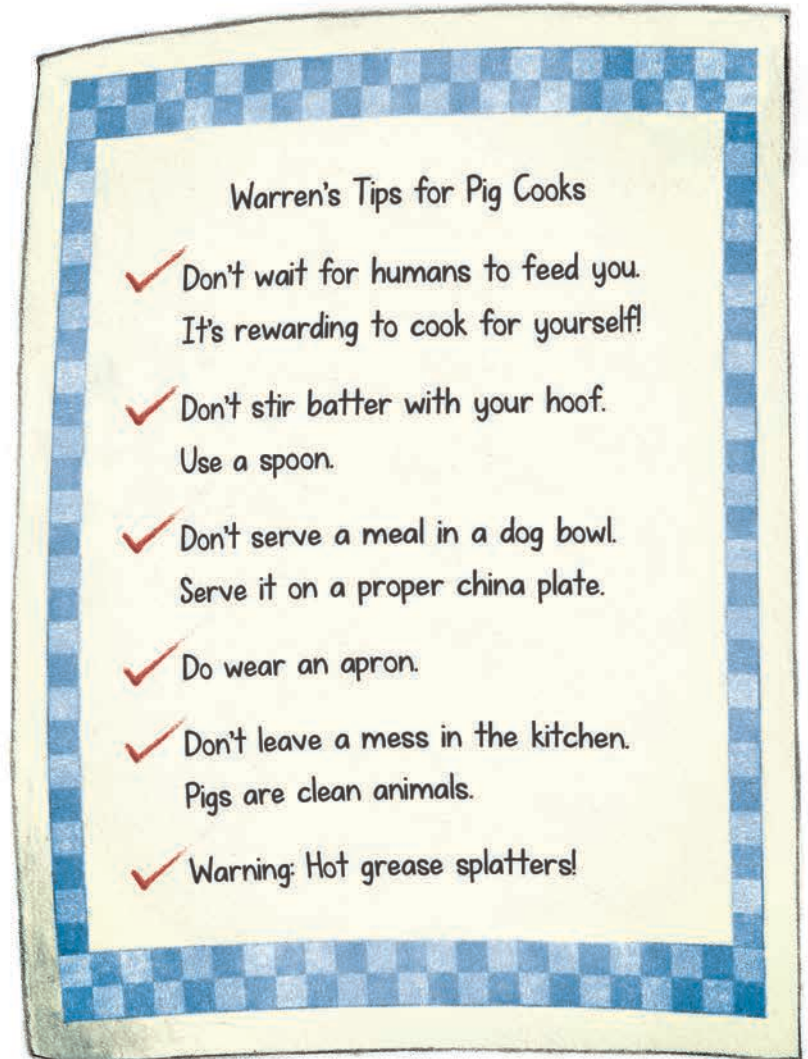 Warren's Tips for Pig Cooks
Don't wait for humans to feed you.
It's rewarding to cook for yourself!
Don't stir batter with your hoof.
Use a spoon.
Don't serve a meal in a dog bowl.
Serve it on a proper china plate.
Do wear an apron.
Don't leave a mess in the kitchen.
Pigs are clean animals.
Warning: Hot grease splatters!